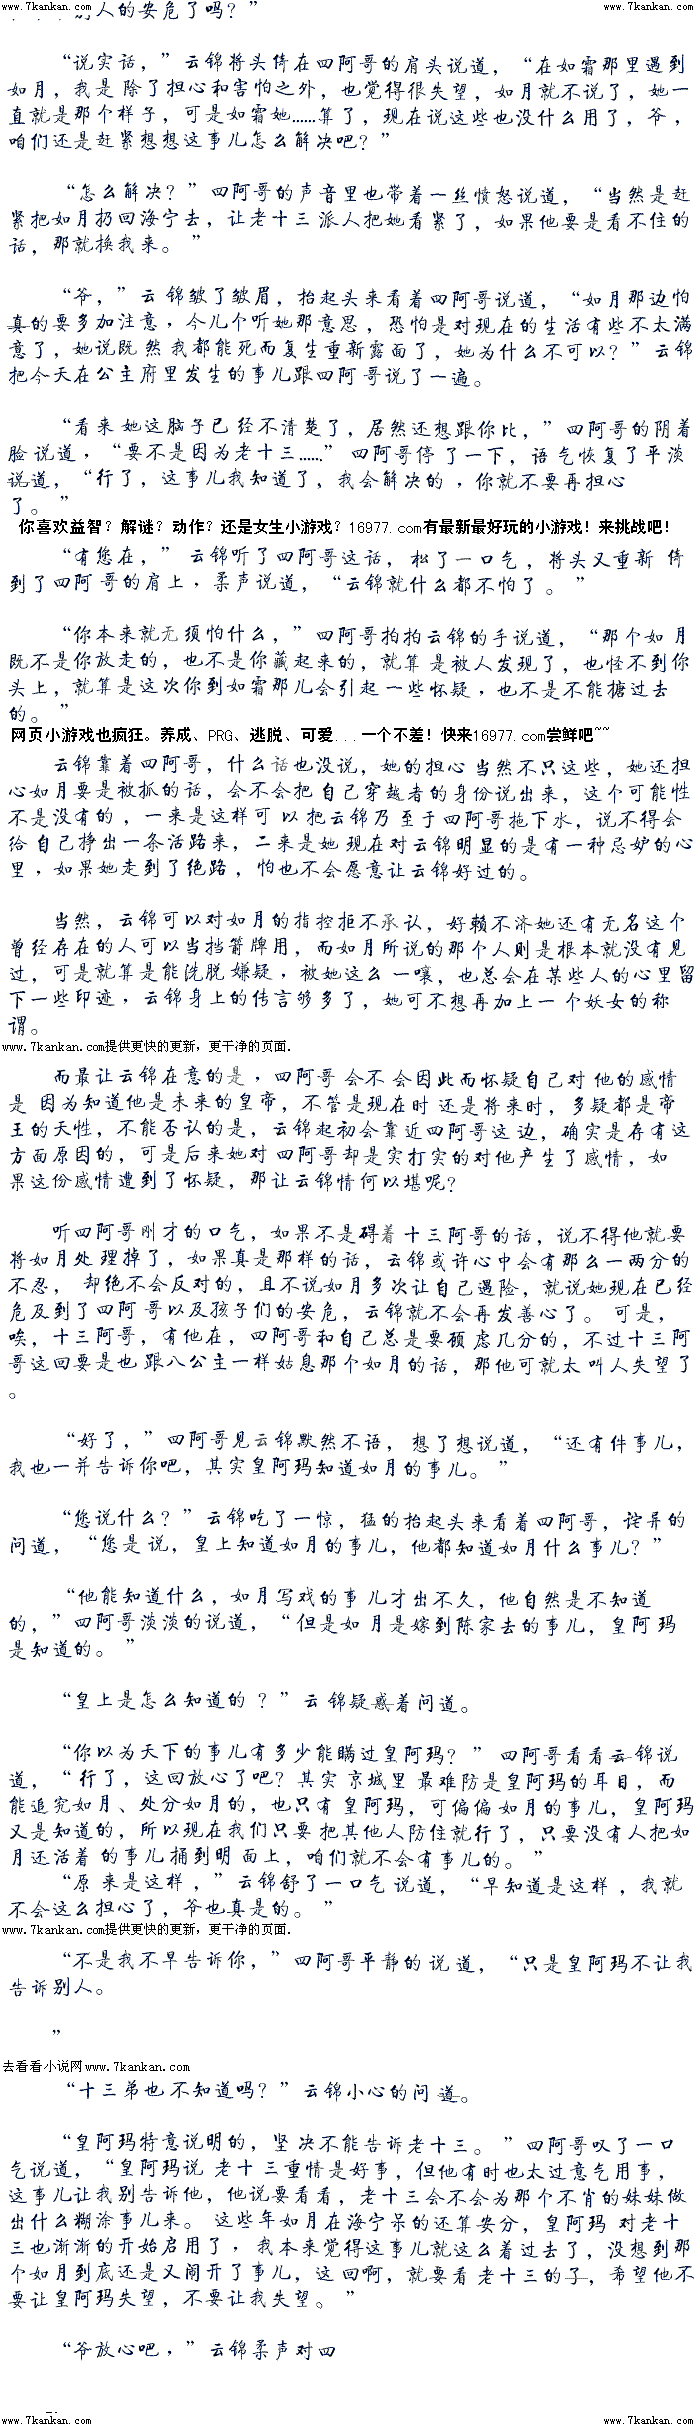 www.7kankan.com www.7kankan.com
别人的安危了吗？”
“说实话，”云锦将头倚在四阿哥的肩头说道，“在如霜那里遇到
如月，我是除了担心和害怕之外，也觉得很失望，如月就不说了，她一
直就是那个样子，可是如霜她……算了，现在说这些也没什么用了，爷，
咱们还是赶紧想想这事儿怎么解决吧？”
“怎么解决？”四阿哥的声音里也带着一丝愤怒说道，“当然是赶
紧把如月扔回海宁去，让老十三派人把她看紧了，如果他要是看不住的
话，那就换我来。”
“爷，”云锦皱了皱眉，抬起头来看着四阿哥说道，“如月那边怕
真的要多加注意，今儿个听她那意思，恐怕是对现在的生活有些不太满
意了，她说既然我都能死而复生重新露面了，她为什么不可以？”云锦
把今天在公主府里发生的事儿跟四阿哥说了一遍。
“看来她这脑子已经不清楚了，居然还想跟你比，”四阿哥的阴着
脸说道，“要不是因为老十三……”四阿哥停了一下，语气恢复了平淡
说道，“行了，这事儿我知道了，我会解决的，你就不要再担心
了。”
你喜欢益智？解谜？动作？还是女生小游戏？16977.com有最新最好玩的小游戏！来挑战吧！
“有您在，”云锦听了四阿哥这话，松了一口气，将头又重新倚
到了四阿哥的肩上，柔声说道，“云锦就什么都不怕了。”
“你本来就无须怕什么，”四阿哥拍拍云锦的手说道，“那个如月
既不是你放走的，也不是你藏起来的，就算是被人发现了，也怪不到你
头上，就算是这次你到如霜那儿会引起一些怀疑，也不是不能搪过去
的。”
网页小游戏也疯狂。养成、PRG、逃脱、可爱...一个不差！快来16977.com尝鲜吧~~
云锦靠着四阿哥，什么话也没说，她的担心当然不只这些，她还担
心如月要是被抓的话，会不会把自己穿越者的身份说出来，这个可能性
不是没有的，一来是这样可以把云锦乃至于四阿哥拖下水，说不得会
给自己挣出一条活路来，二来是她现在对云锦明显的是有一种忌妒的心
里，如果她走到了绝路，怕也不会愿意让云锦好过的。
当然，云锦可以对如月的指控拒不承认，好赖不济她还有无名这个
曾经存在的人可以当挡箭牌用，而如月所说的那个人则是根本就没有见
过，可是就算是能洗脱嫌疑，被她这么一嚷，也总会在某些人的心里留
下一些印迹，云锦身上的传言够多了，她可不想再加上一个妖女的称
谓。
www.7kankan.com提供更快的更新，更干净的页面.
而最让云锦在意的是，四阿哥会不会因此而怀疑自己对他的感情
是因为知道他是未来的皇帝，不管是现在时还是将来时，多疑都是帝
王的天性，不能否认的是，云锦起初会靠近四阿哥这边，确实是存有这
方面原因的，可是后来她对四阿哥却是实打实的对他产生了感情，如
果这份感情遭到了怀疑，那让云锦情何以堪呢？
听四阿哥刚才的口气，如果不是碍着十三阿哥的话，说不得他就要
将如月处理掉了，如果真是那样的话，云锦或许心中会有那么一两分的
不忍，却绝不会反对的，且不说如月多次让自己遇险，就说她现在已经
危及到了四阿哥以及孩子们的安危，云锦就不会再发善心了。可是，
唉，十三阿哥，有他在，四阿哥和自己总是要顾虑几分的，不过十三阿
哥这回要是也跟八公主一样姑息那个如月的话，那他可就太叫人失望了
。
“好了，”四阿哥见云锦默然不语，想了想说道，“还有件事儿，
我也一并告诉你吧，其实皇阿玛知道如月的事儿。”
“您说什么？”云锦吃了一惊，猛的抬起头来看着四阿哥，诧异的
问道，“您是说，皇上知道如月的事儿，他都知道如月什么事儿？”
“他能知道什么，如月写戏的事儿才出不久，他自然是不知道
的，”四阿哥淡淡的说道，“但是如月是嫁到陈家去的事儿，皇阿玛
是知道的。”
“皇上是怎么知道的？”云锦疑惑着问道。
“你以为天下的事儿有多少能瞒过皇阿玛？”四阿哥看看云锦说
道，“行了，这回放心了吧？其实京城里最难防是皇阿玛的耳目，而
能追究如月、处分如月的，也只有皇阿玛，可偏偏如月的事儿，皇阿玛
又是知道的，所以现在我们只要把其他人防住就行了，只要没有人把如
月还活着的事儿捅到明面上，咱们就不会有事儿的。”
“原来是这样，”云锦舒了一口气说道，“早知道是这样，我就
不会这么担心了，爷也真是的。”
www.7kankan.com提供更快的更新，更干净的页面.
“不是我不早告诉你，”四阿哥平静的说道，“只是皇阿玛不让我
告诉别人。
”
去看看小说网www.7kankan.com
“十三弟也不知道吗？”云锦小心的问道。
“皇阿玛特意说明的，坚决不能告诉老十三。”四阿哥叹了一口
气说道，“皇阿玛说老十三重情是好事，但他有时也太过意气用事，
这事儿让我别告诉他，他说要看看，老十三会不会为那个不肖的妹妹做
出什么糊涂事儿来。这些年如月在海宁呆的还算安分，皇阿玛对老十
三也渐渐的开始启用了，我本来觉得这事儿就这么着过去了，没想到那
个如月到底还是又闹开了事儿，这回啊，就要看老十三的了，希望他不
要让皇阿玛失望，不要让我失望。”
“爷放心吧，”云锦柔声对四
www.7kankan.com www.7kankan.com